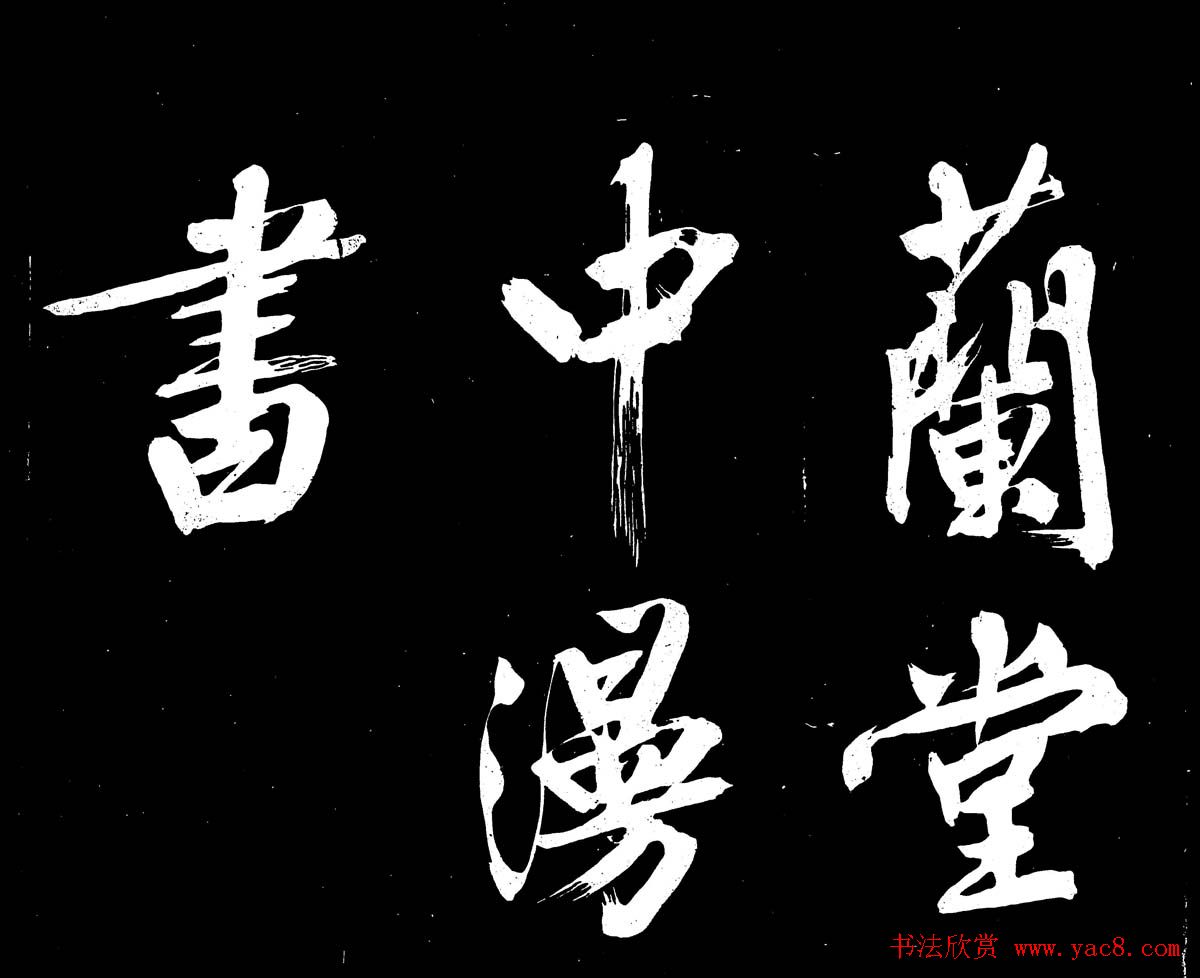 蘭堂
中漫
書
书法欣赏 www.yac8.com